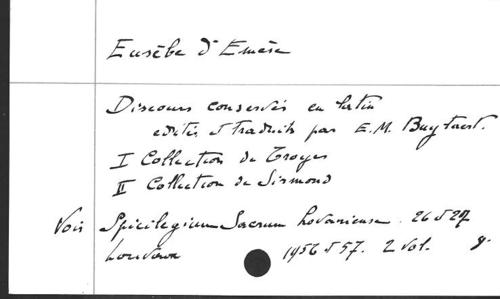 Eusèbe d'Emèse
Discours conservés en latin
édités et traduits par E.M. Buytaert.
I Collection de Troyes
II Collection de Sirmond
Voir Spicilegium Sacrum Lovaniense. 26 et 27
Louvain 1956 et 57. 2 vol.